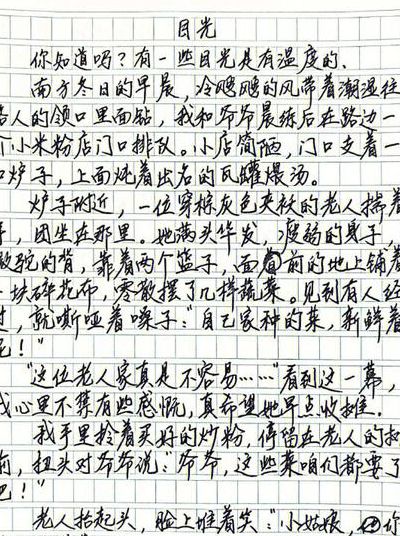 目光
你知道吗？有一些目光是有温度的。
南方冬日的早晨，冷飕飕的风带着潮湿往
路人的领口里面钻，我和爷爷晨练后在路边一
个小米粉店门口排队。小店简陋，门口支着一
口炉子，上面炖着出名的瓦罐煨汤。
炉子附近，一位穿棕灰色夹袄的老人揣着
手，团坐在那里。她满头华发，瘦弱的身子
微驼的背，靠着两个篮子，面前的地上铺着
一块碎花布，零散摆了几样蔬菜。见到有人经
过，就嘶哑着嗓子：“自己家种的菜，新鲜着
呢！”
“这位老人家真是不容易……”看到这一幕，
我心里不禁有些感慨，真希望她早点收摊。
我手里拎着买好的炒粉，停留在老人的
前，扭头对爷爷说：“爷爷，这些菜咱们都要了
吧！”
老人抬起头，脸上堆着笑：“小姑娘，你